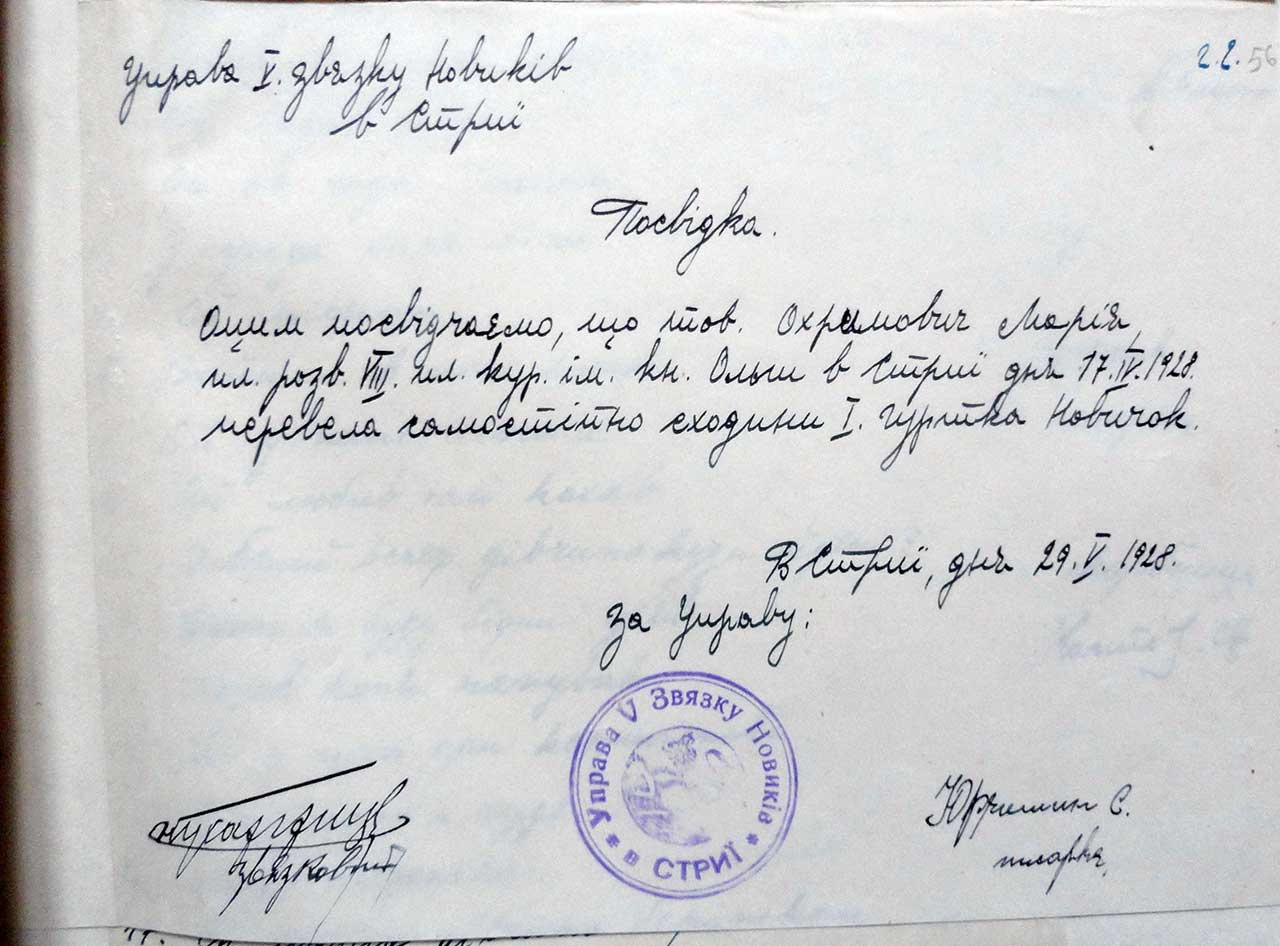 Управа V. звязку Новиків
в Стрию
2.2. 56
Посвідка.
Оцим посвідчаємо, що тов. Охримович Марія,
пл. розв. VIII. пл. кур. ім. кн. Ольги в Стрию дня 17.IV.1928.
перевела самостійно сходини I. гуртка Новичок.
В Стрию, дня 29.V.1928.
За Управу:
Управа V Звязку Новиків
* в СТРИЇ *
Звязковий
Юрчишин С.
писарка,